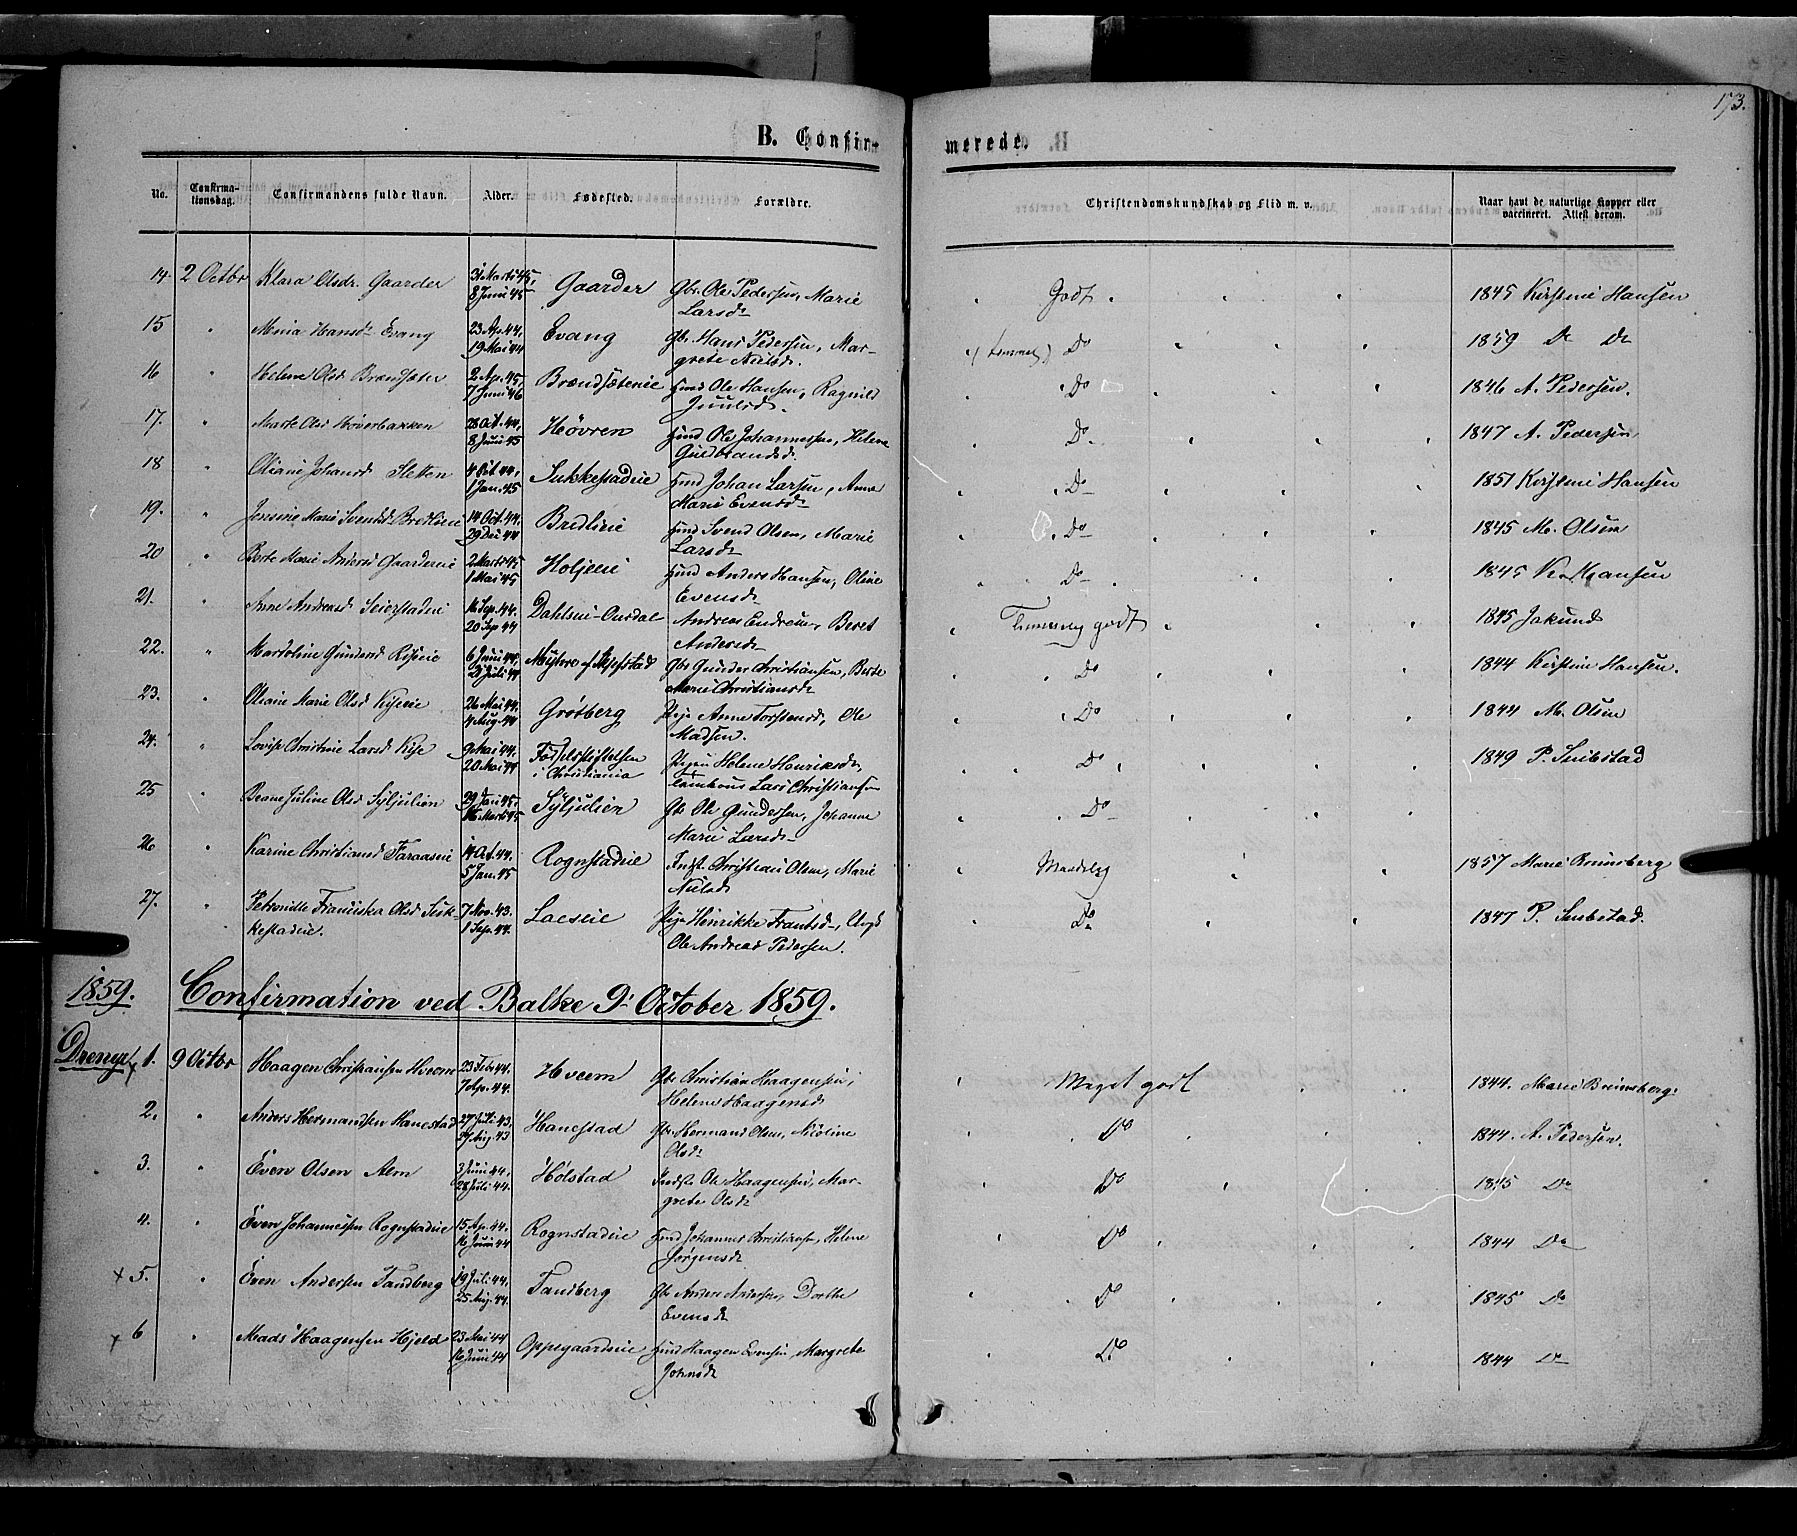 173.
B. Confirmerede.
No. Confirmationsdag. Confirmandens fulde Navn. Alder. Fødested. Forældre. Christendomskundskab og Flid m. v. Naar havt de naturlige Kopper eller vaccineret. Attest derom.
14. 2 Octbr Klara Olsdr. Gaarder 31 Marts 45, 8 Juni 45 Gaarder Gbr. Ole Pedersen, Marie Larsdr Godt 1845 Kirstine Hansen
15 " Mina Hansdr Evang 23 Ap. 44, 19 Mai 44 Evang Gbr. Hans Pedersen, Margrete Nilsdr. Do 1859 Do Do
16 " Helene Olsd Brændsæter 2 Ap. 45, 7 Juni 46 Brændsæterie Huusd Ole Hansen, Ragnild Juulsd. Do 1846 A. Pedersen.
17. " Marte Olsd Høverbakken 28 Oct. 44, 8 Juni 45 Høvren Huusd Ole Johannessen, Helene Guldbrandsd. Do 1847 A. Pedersen
18 " Oliane Johansd Sletten 4 Oct 44, 1 Jan. 45 Sukkestadeie Huusd Johan Larsen, Anne Marie Evensdr Do 1851 Kirstine Hansen
19. " Jensine Marie Svendsd Bredlien 14 Oct. 44, 29 Dec 44 Bredlien Huusd Svend Olsen, Marie Larsdr Do 1845 M. Olsen
20 " Berte Marie Andersd Gaarderie 2 Marts 45 1 Mai 45 Holjeeie Huusd Anders Hansen, Oline Evensdr Do 1845 K. Hansen
21. " Anne Andreasd Seierstadeie 16 Sep. 44. 20 Sep 44 Dahlseie-Ourdal Andreas Endresen, Beret Andersdr Temmelig godt 1845 Jakund
22. " Martoline Gundersd Riseeie 6 Juni 44, Juli 44 Gbr Gunder Christiansen, Berte Marie Christiansdr Do 1844 Kirstine Hansen.
23. " Oliane Marie Olsd Kiseeie 26 Mai 44, 4 Aug. 44 Grøtberg Pige Anne Torstensd, Ole Madsen. Do 1844 M. Olsen
24. " Lovise Christine Larsd Kise 9 Mai 44, 20 Mai 44 Fødselsstiftelsen i Christiania Pigen Helene Henriksdr, Tambour Lars Christiansen Do 1849 P. Snibstad
25 " Beane Juline Olsd Syljulien 29 Jan 45. 16 Marts 45 Syljulien Gbr Ole Gundersen, Johanne Marie Larsdr Do
26 " Karine Christiansd Faraaseie 14 Oct. 44. 5 Jan. 45 Rognstadeie Indst. Christian Olsen, Marie Nilsdr Maadelig 1857 Marie Brunsberg
27. " Petronille Franciska Olsd Sukkestadeie. 7 Nov. 43. 1 Sep. 44. Laeseie Pige Henrikke Frantsdr, Ole Andreas Pedersen. Do 1847 P. Snibstad.
1859. Confirmation ved Balke 9d October 1859.
Drenge
1. 9 Octbr Haagen Christiansen Hveem 23 Feb 44. 7 Apr. 44. Hveem Gbr Christian Haagensen, Helene Haagensdr Meget godt 1844. Marie Brunsberg.
2. " Anders Hermandsen Hanestad 27 Juli 43. 27 Aug. 43 Hanestad Gbr Hermand Olsen, Nicoline Olsdr Do 1844. A. Pedersen.
3. " Even Olsen Alm 3 Juni 44, 28 Juli 44. Hølstad Indst. Ole Haagensen, Margrete Olsdr Do 1845 Do
4. " Even Johannessen Rognstadeie 15. Ap. 44. 16 Juni 44 Rognstadeie Huusd Johannes Christiansen, Helene Jørgensdr Do 1844 Do
x 5. " Even Andersen Tandberg 19 Juli 44, 25 Aug. 44. Tandberg Gbr Anders Andersen, Dorthe Evensdr Do 1845 Do
x 6 " Mads Haagensen Hjeld 23 Mai 44 16 Juni 44 Oppegaardeie Huusd Haagen Evensen, Margrete Johnsdr Do 1844 Do